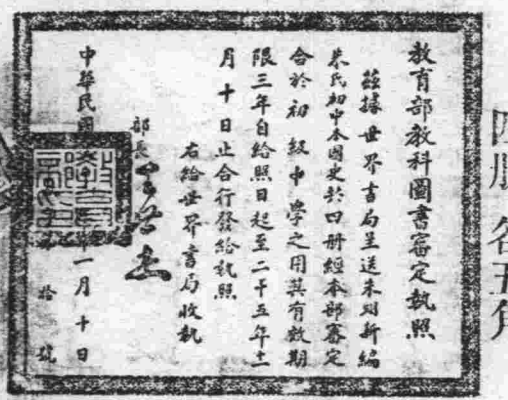 教育部教科圖書審定執照
茲據世界書局呈送朱翊新編
朱氏初中本國史共四冊經本部審定
合於初級中學之用其有效期
限三年自給照日起至二十五年十一
月十日止合行發給執照
右給世界書局收執
部長
中華民國 一月十日
拾 號
四册 各五角